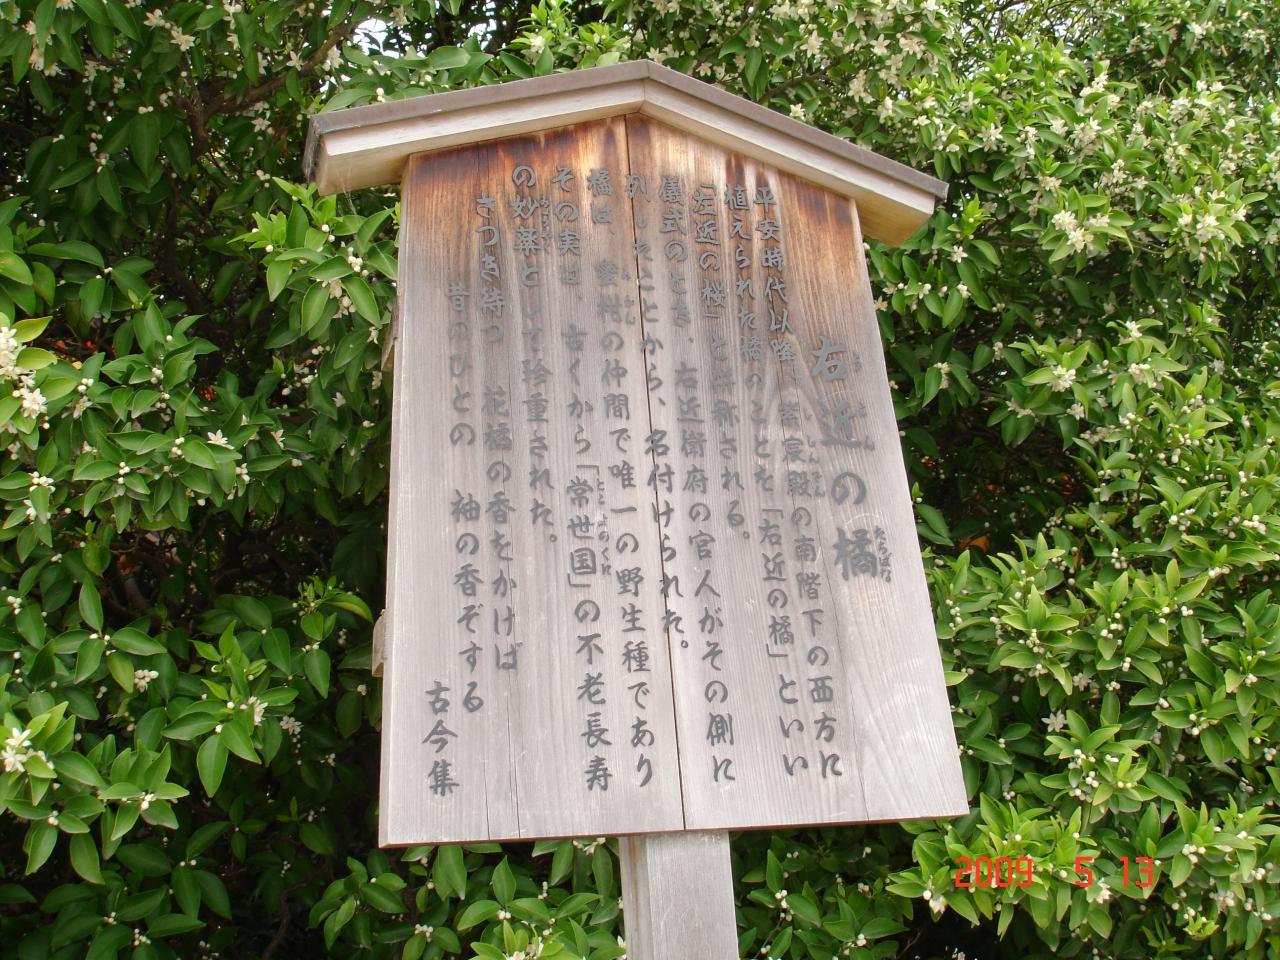 右近の橘
平安時代以降、紫宸殿の南階下の西方に
植えられた橘のことを「右近の橘」といい
「左近の桜」と並称される。
儀式のとき、右近衛府の官人がその側に
列したことから、名付けられた。
橘は、蜜柑の仲間で唯一の野生種であり
その実は、古くから「常世国」の不老長寿
の妙薬として珍重された。
さつき待つ 花橘の香をかげば
昔のひとの 袖の香ぞする
古今集
2009 5 13